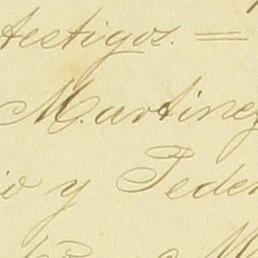 testigos. =
M. Martinez
io y Feder